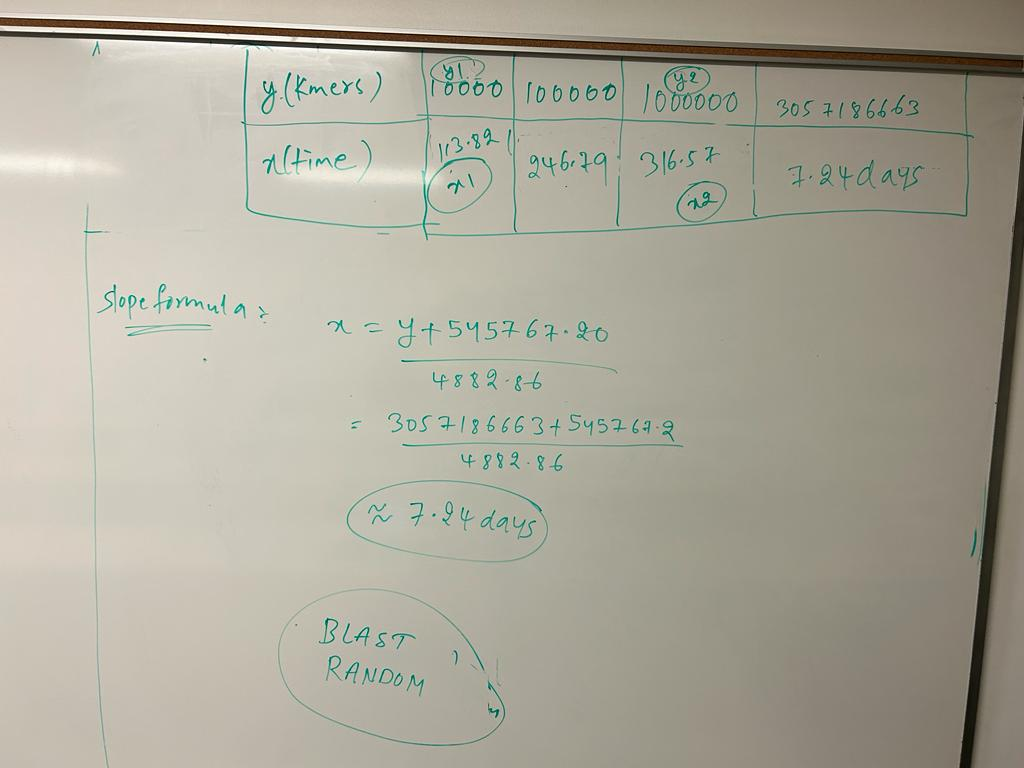 y1
y2
y.(Kmers) 10000 100000 1000000 3057186663
x(time) 113.82 246.79 316.57 7.24days
x1
x2
Slope formula :
x = y+545767.20
4882.86
= 3057186663+545767.2
4882.86
≈ 7.24days
BLAST
RANDOM